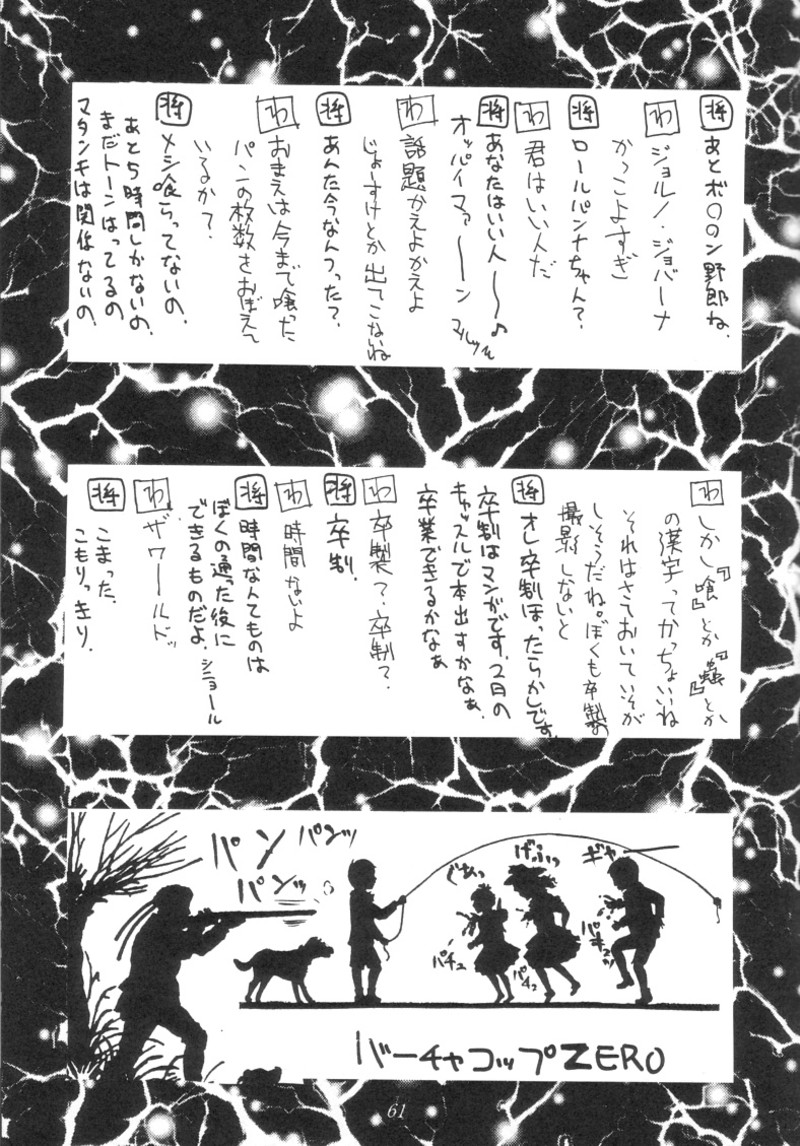 将 あとボ○○ン野郎ね.
わ ジョルノ・ジョバーナ
かっこよすぎ
将 ロールパンナちゃん?
わ 君はいい人だ
将 あなたはいい人〜〜♪
オッパイマァ〜〜ン
わ 話題かえよかえよ
じょーすけとか出てこないね
将 あんた今なんつった?
わ おまえは今まで喰った
パンの枚数をおぼえて
いるか?
将 メシ喰らってないの.
あと5時間しかないの.
まだトーンはってるの
マタンキは関係ないの.
わ しかし『喰』とか『蟲』とか
の漢字ってかっちょいいね
それはさておいていそが
しそうだね。ぼくも卒製の
撮影しないと
将 オレ卒制ほったらかしです.
卒制はマンガです. 2日の
キャッスルで本出すかなぁ.
卒業できるかなぁ
わ 卒製?・卒制?
将 卒制.
わ 時間ないよ
将 時間なんてものは
ぼくの通った後に
できるものだよ. シニョール
わ ザワールドッ
将 こまった.
こもりっきり.
パン パンッ
パンッ
ぐあっ
げふっ
ギャー
パチュ
パチュ
パチュ
バーチャコップZERO
61